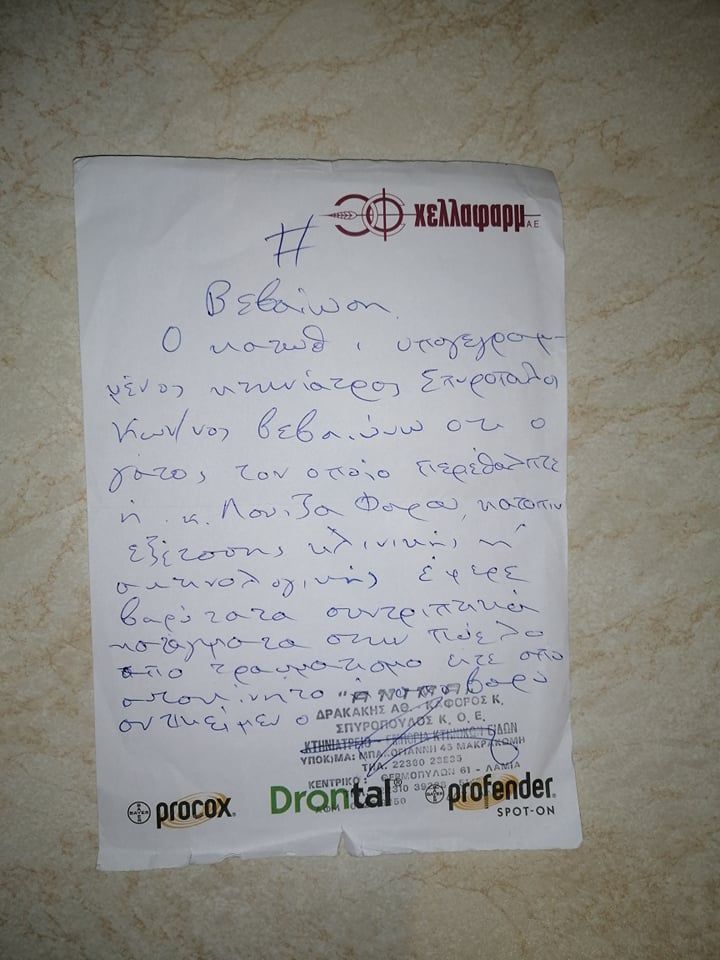 χελλαφαρμ ΑΕ
#
Βεβαίωση.
Ο κατωθι υπογεγραμ-
μένος κτηνίατρος Σπυρόπουλος
Κων/νος βεβαιώνω οτι ο
γάτος τον οποίο περιέθαλπτε
η κ. Λουιζα Φαρου, κατοπιν
εξέτασης κλινικής η
ακτινολογικής έφερε
βαρύτατα συντριπτικά
κατάγματα στην πύελο
από τραυματισμο ειτε απο
αυτοκίνητο ή απο βαρύ
αντικείμενο
"ΑΝΙΜΑ
ΔΡΑΚΑΚΗΣ ΑΘ. - ΚΑΦΟΡΟΣ Κ.
ΣΠΥΡΟΠΟΥΛΟΣ Κ. Ο. Ε.
ΚΤΗΝΙΑΤΡΕΙΟ - ΕΜΠΟΡΙΑ ΚΤΗΝΙΚΩΝ ΕΙΔΩΝ
ΥΠΟΚ)ΜΑ: ΜΠΑΚΟΓΙΑΝΝΗ 45 ΜΑΚΡΑΚΩΜΗ
ΤΗΛ. 22360 23835
ΚΕΝΤΡΙΚΟ: ΘΕΡΜΟΠΥΛΩΝ 61 - ΛΑΜΙΑ
BAYER procox® Drontal® BAYER profender®
SPOT-ON